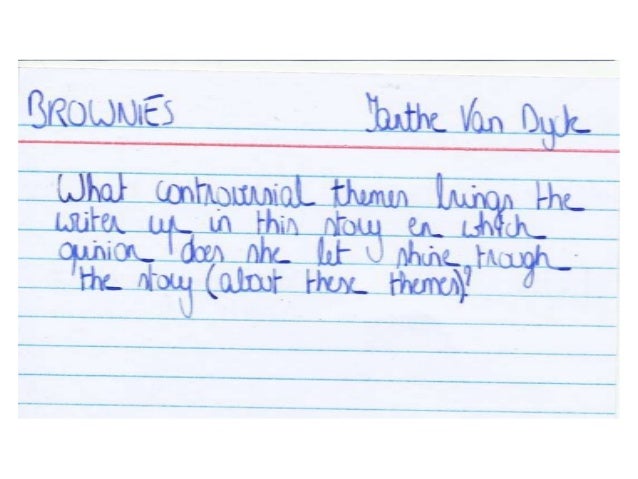 BROWNIES Janthe Van Dyck
What controversial themes brings the
writer up in this story en which
opinion does she let shine trough
the story (about these themes)?